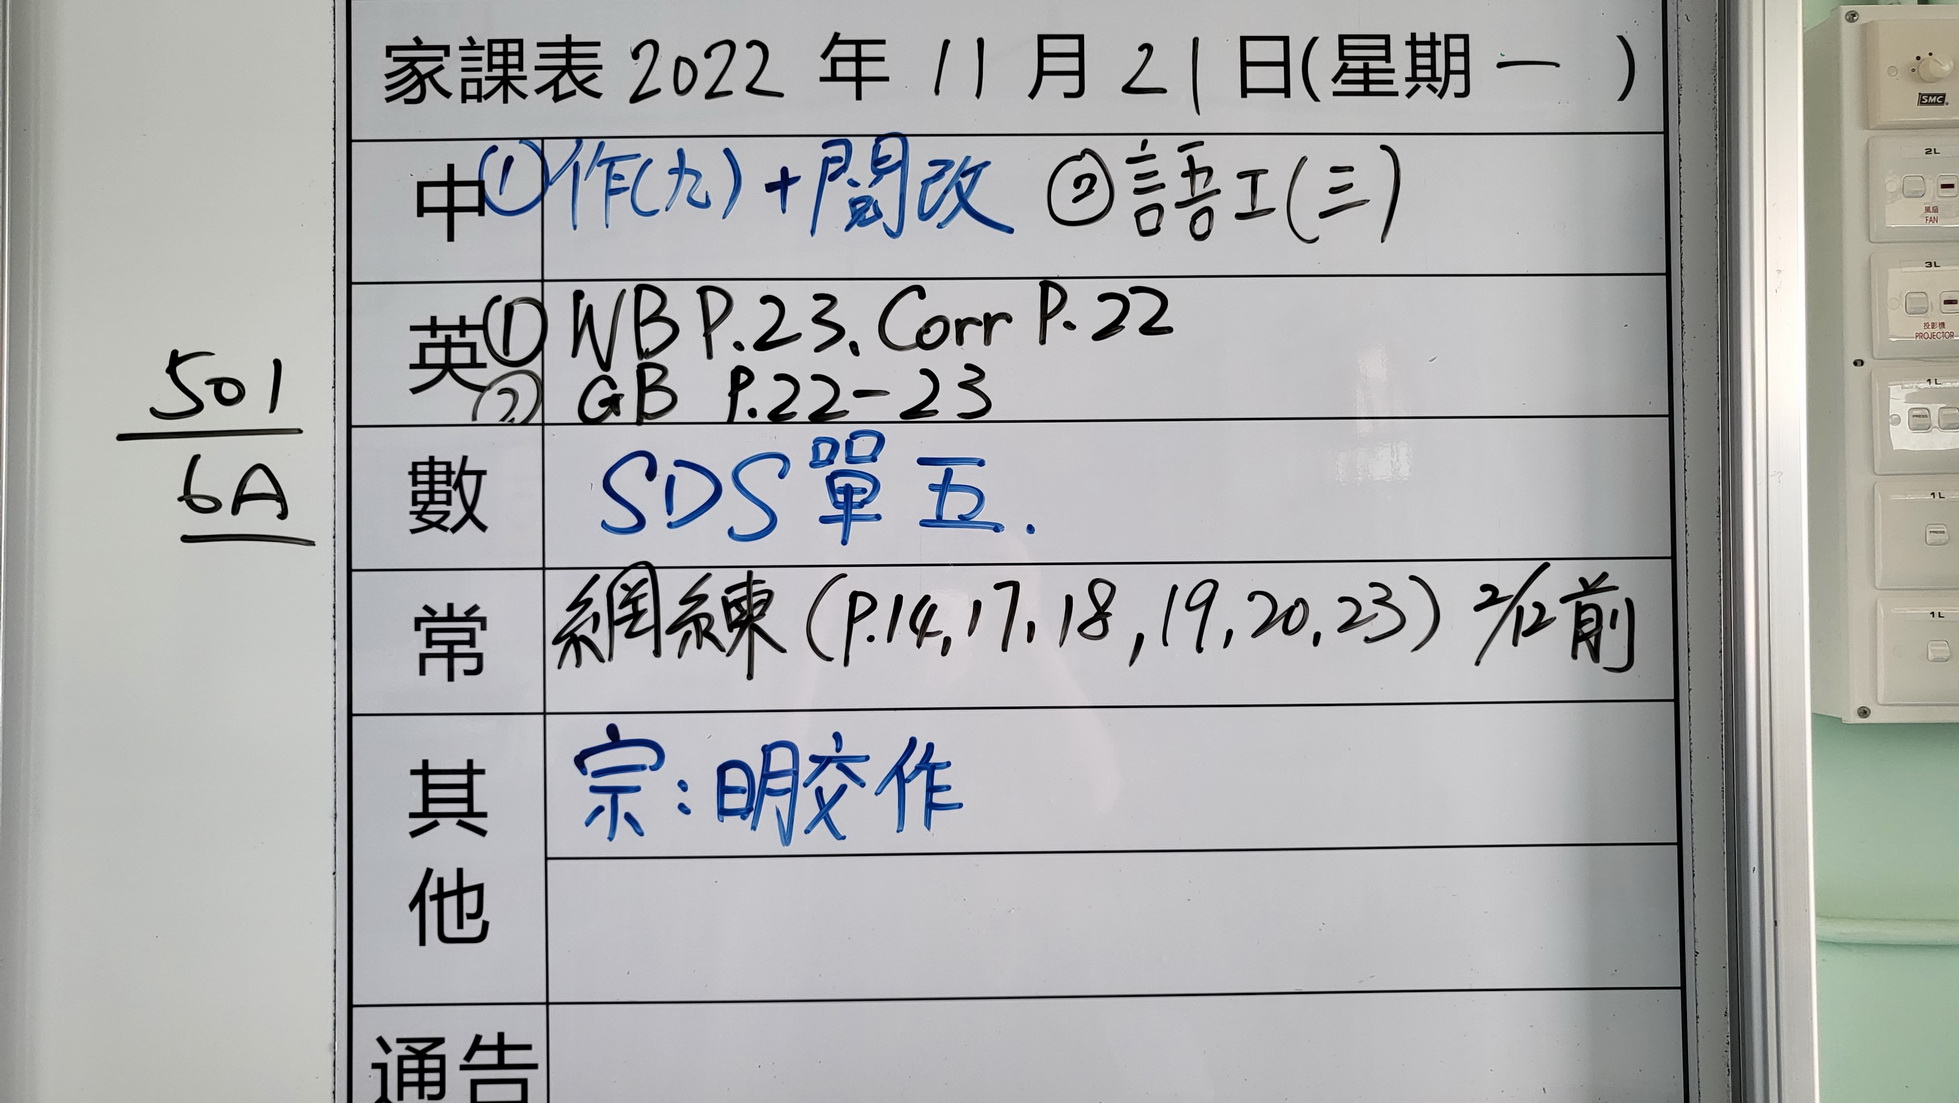 家課表 2022 年 11 月 21 日(星期一 )
501
6A
中 ① 作(九)+閱改 ② 語工(三)
英 ① WB P.23、Corr P.22
② GB P.22-23
數 SDS單五.
常 網練(P.14,17,18,19,20,23) 2/12前
其他 宗:明交作
通告
SMC
2L
風扇
FAN
3L
投影機
PROJECTOR
1L
PRESS
1L
PRESS
1L